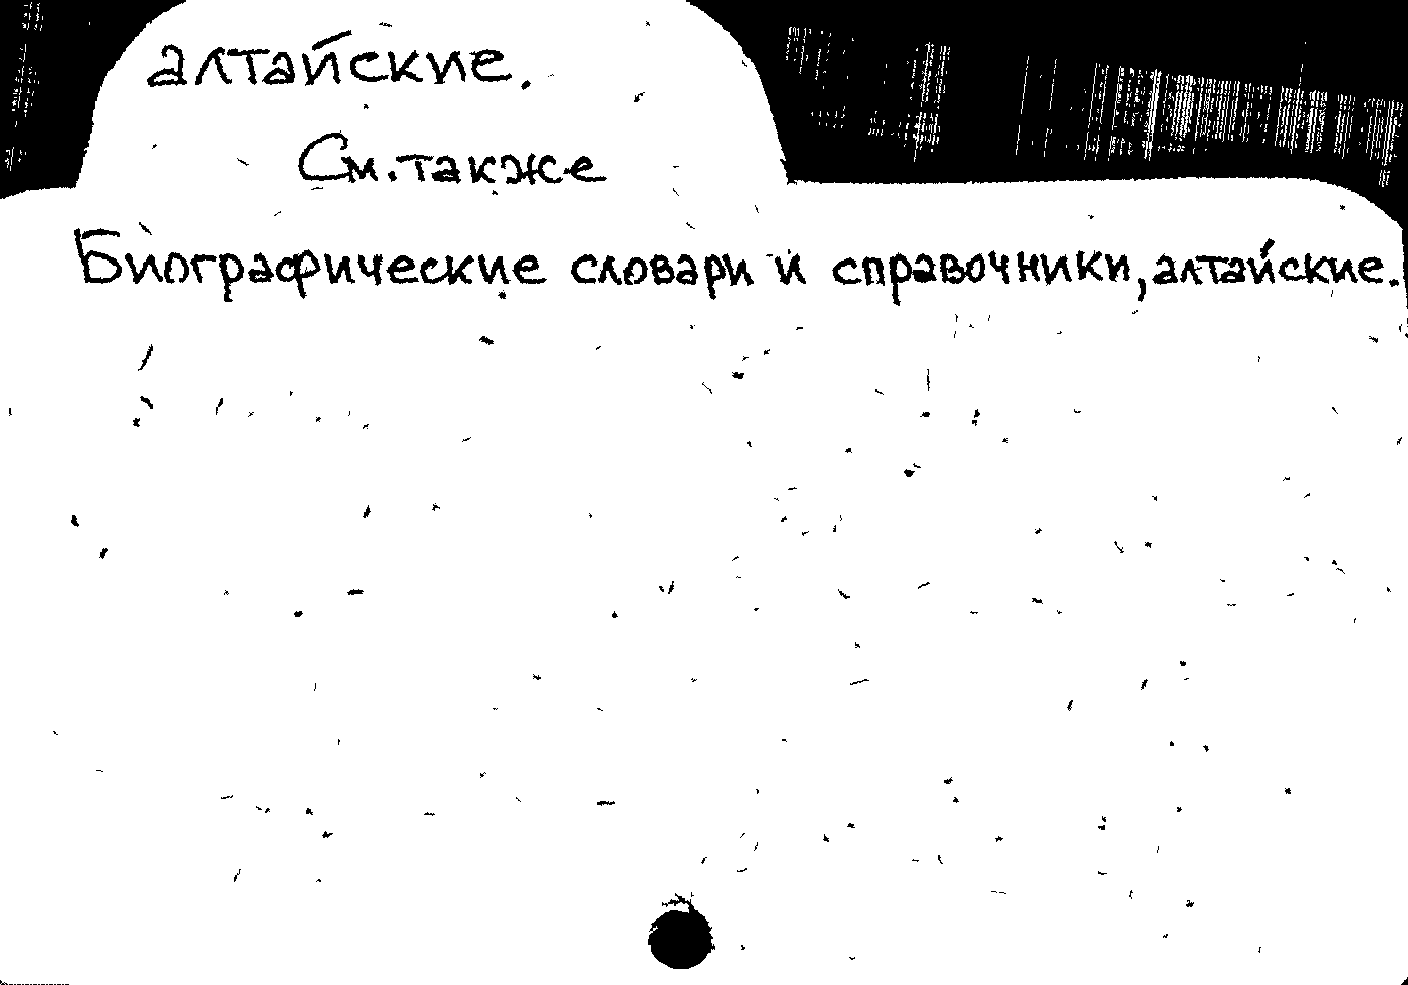 алтайские.
См. также
Биографические словари и справочники, алтайские.